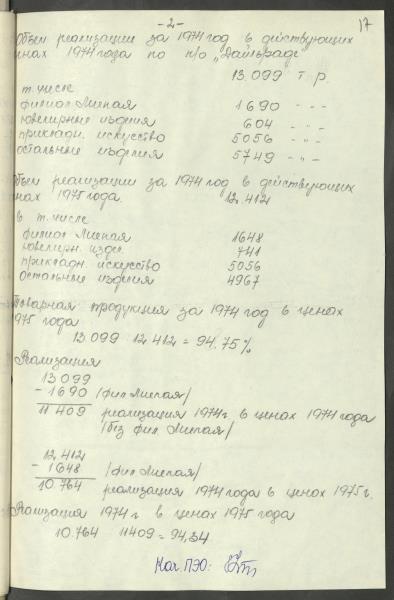 -2-
17
Объем реализации за 1974 год в действующих
ценах 1974 года по п/о „Дайльраде"
13.099 т.р.
т. числе
филиал Лиепая 1690 -"-
ювелирные изделия 604 -"-
прикладн. искусство 5056 -"-
остальные изделия 5749 -"-
Объем реализации за 1974 год в действующих
ценах 1975 года. 12.412
в т. числе
филиал Лиепая 1648
ювелирн. изде. 741
прикладн. искусство 5056
остальные изделия 4967
Товарная продукция за 1974 год в ценах
1975 года
13.099 12.412 = 94.75%
Реализация
13099
- 1690 /фил Лиепая/
11409 реализация 1974г. в ценах 1974 года
/без фил Лиепая/
12.412
- 1648 /фил Лиепая/
10.764 реализация 1974 года в ценах 1975г.
Реализация 1974 г. в ценах 1975 года
10.764 11409 = 94,34.
Нач. ПЭО: